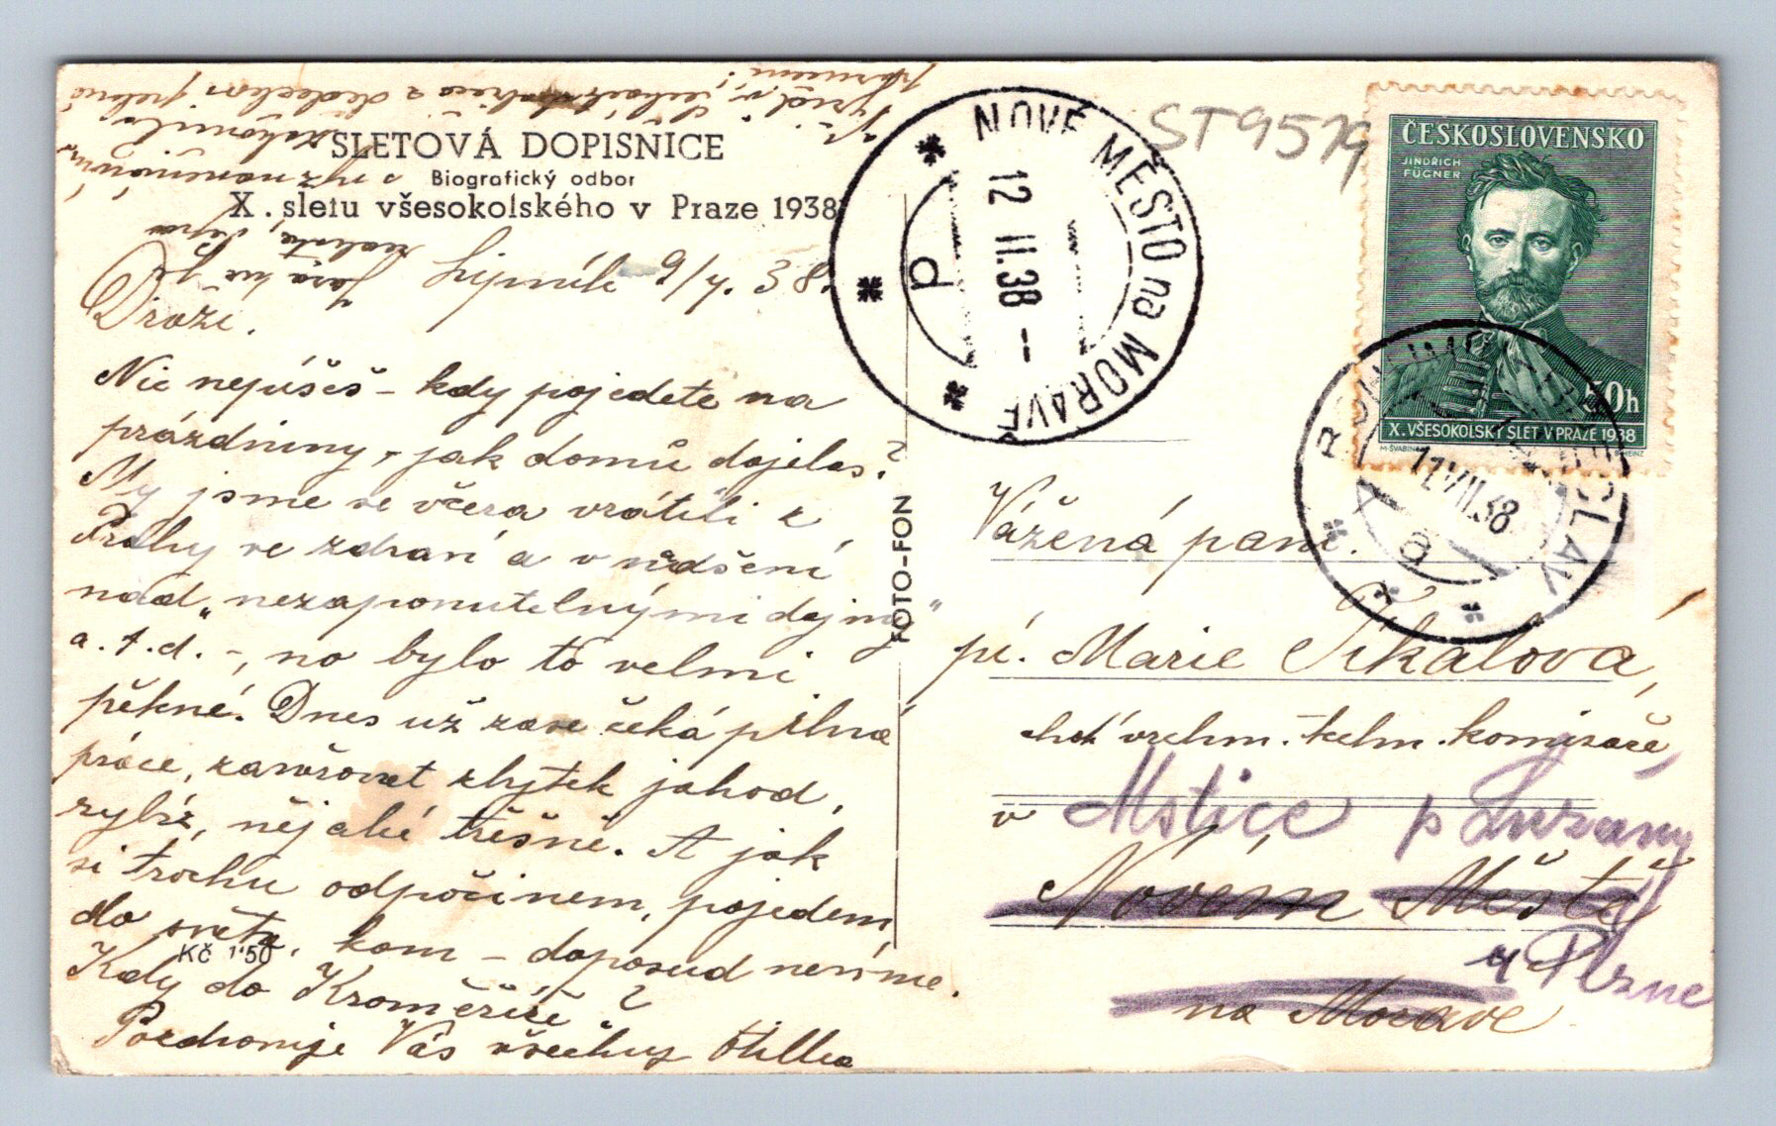 SLETOVÁ DOPISNICE
Biografický odbor
X. sletu všesokolského v Praze 1938
Lipník 9/7. 38.
Drazí.
Nic nepíšeš - kdy pojedete na
prázdniny, jak domů dojelas?
My jsme se včera vrátili z
Prahy ve zdraví a v nadšení
nad „nezapomutelnými dojmy“
a.t.d. -, no bylo to velmi
pěkné. Dnes už zase čeká pilná
práce, zavařovat zbytek jahod,
rybíz, nějaké třešně. A jak
si trochu odpočinem, pojedem
do světa, kam - doposud nevíme.
Kč 1'50
Kdy do Kroměříže?
Pozdravuje Vás všechny
FOTO-FON
NOVÉ MĚSTO na MORAVĚ
12 VII.38 - 1
d
ST9579
ČESKOSLOVENSKO
JINDŘICH
FÜGNER
50h
X. VŠESOKOLSKÝ SLET V PRAZE 1938
11.VII.38
a
Vážená paní.
pí. Marie Síkalová,
choť vrchn. techn. komisaře,
v Mstice p Luzany
Novém Městě
u Plzne
na Moravě